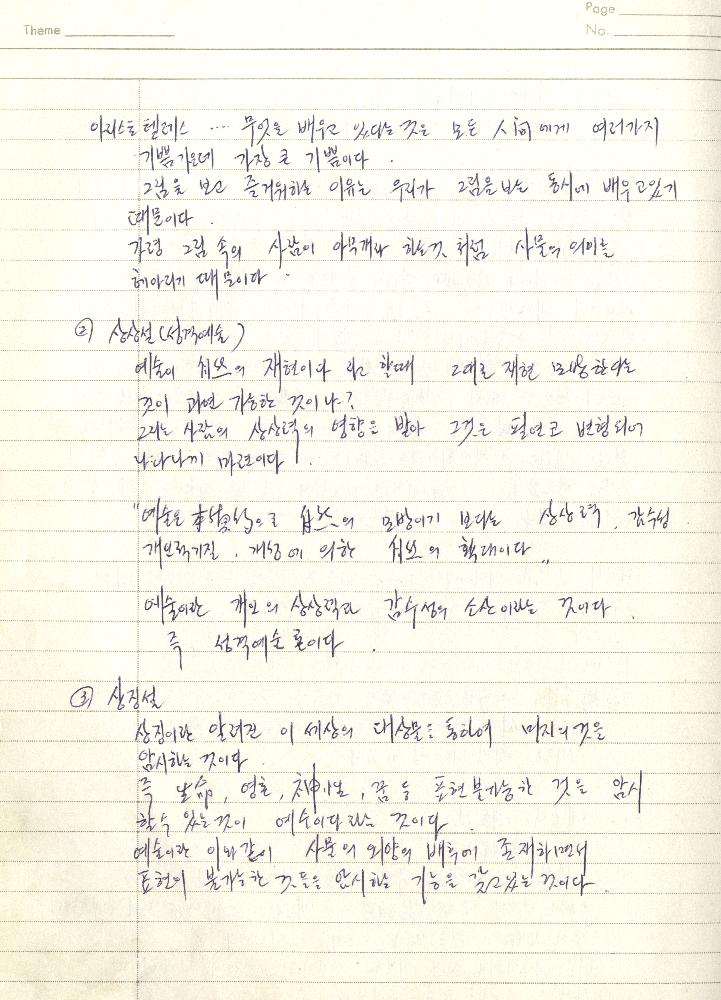 Theme
Page
No.
아리스토텔레스 … 무엇을 배우고 있다는 것은 모든 人間에게 여러가지
기쁨가운데 가장 큰 기쁨이다.
그림을 보고 즐거워하는 이유는 우리가 그림을 보는 동시에 배우고있기
때문이다.
가령 그림 속의 사람이 아무개라 하는것 처럼 사물의 의미를
헤아리기 때문이다.
② 상상설(성격예술)
예술이 自然의 재현이다 라고 할때 그대로 재현 모방한다는
것이 과연 가능한 것이냐?
그것은 사람의 상상력의 영향을 받아 그것은 필연코 변형되어
나타나기 마련이다.
"예술은 本質的으로 自然의 모방이기 보다는 상상력, 감수성
개인적기질, 개성에 의한 自然의 확대이다"
예술이란 개인의 상상력과 감수성의 소산이라는 것이다.
즉 성격예술론이다.
③ 상징설
상징이란 알려진 이 세상의 대상물을 통하여 미지의 것을
암시하는 것이다.
즉 生命, 영혼, 꿈 등 표현불가능한 것을 암시
할수 있는것이 예술이다라는 것이다.
예술이란 이와같이 사물의 외양의 배후에 존재하면서
표현이 불가능한 것들을 암시하는 기능을 갖고있는 것이다.